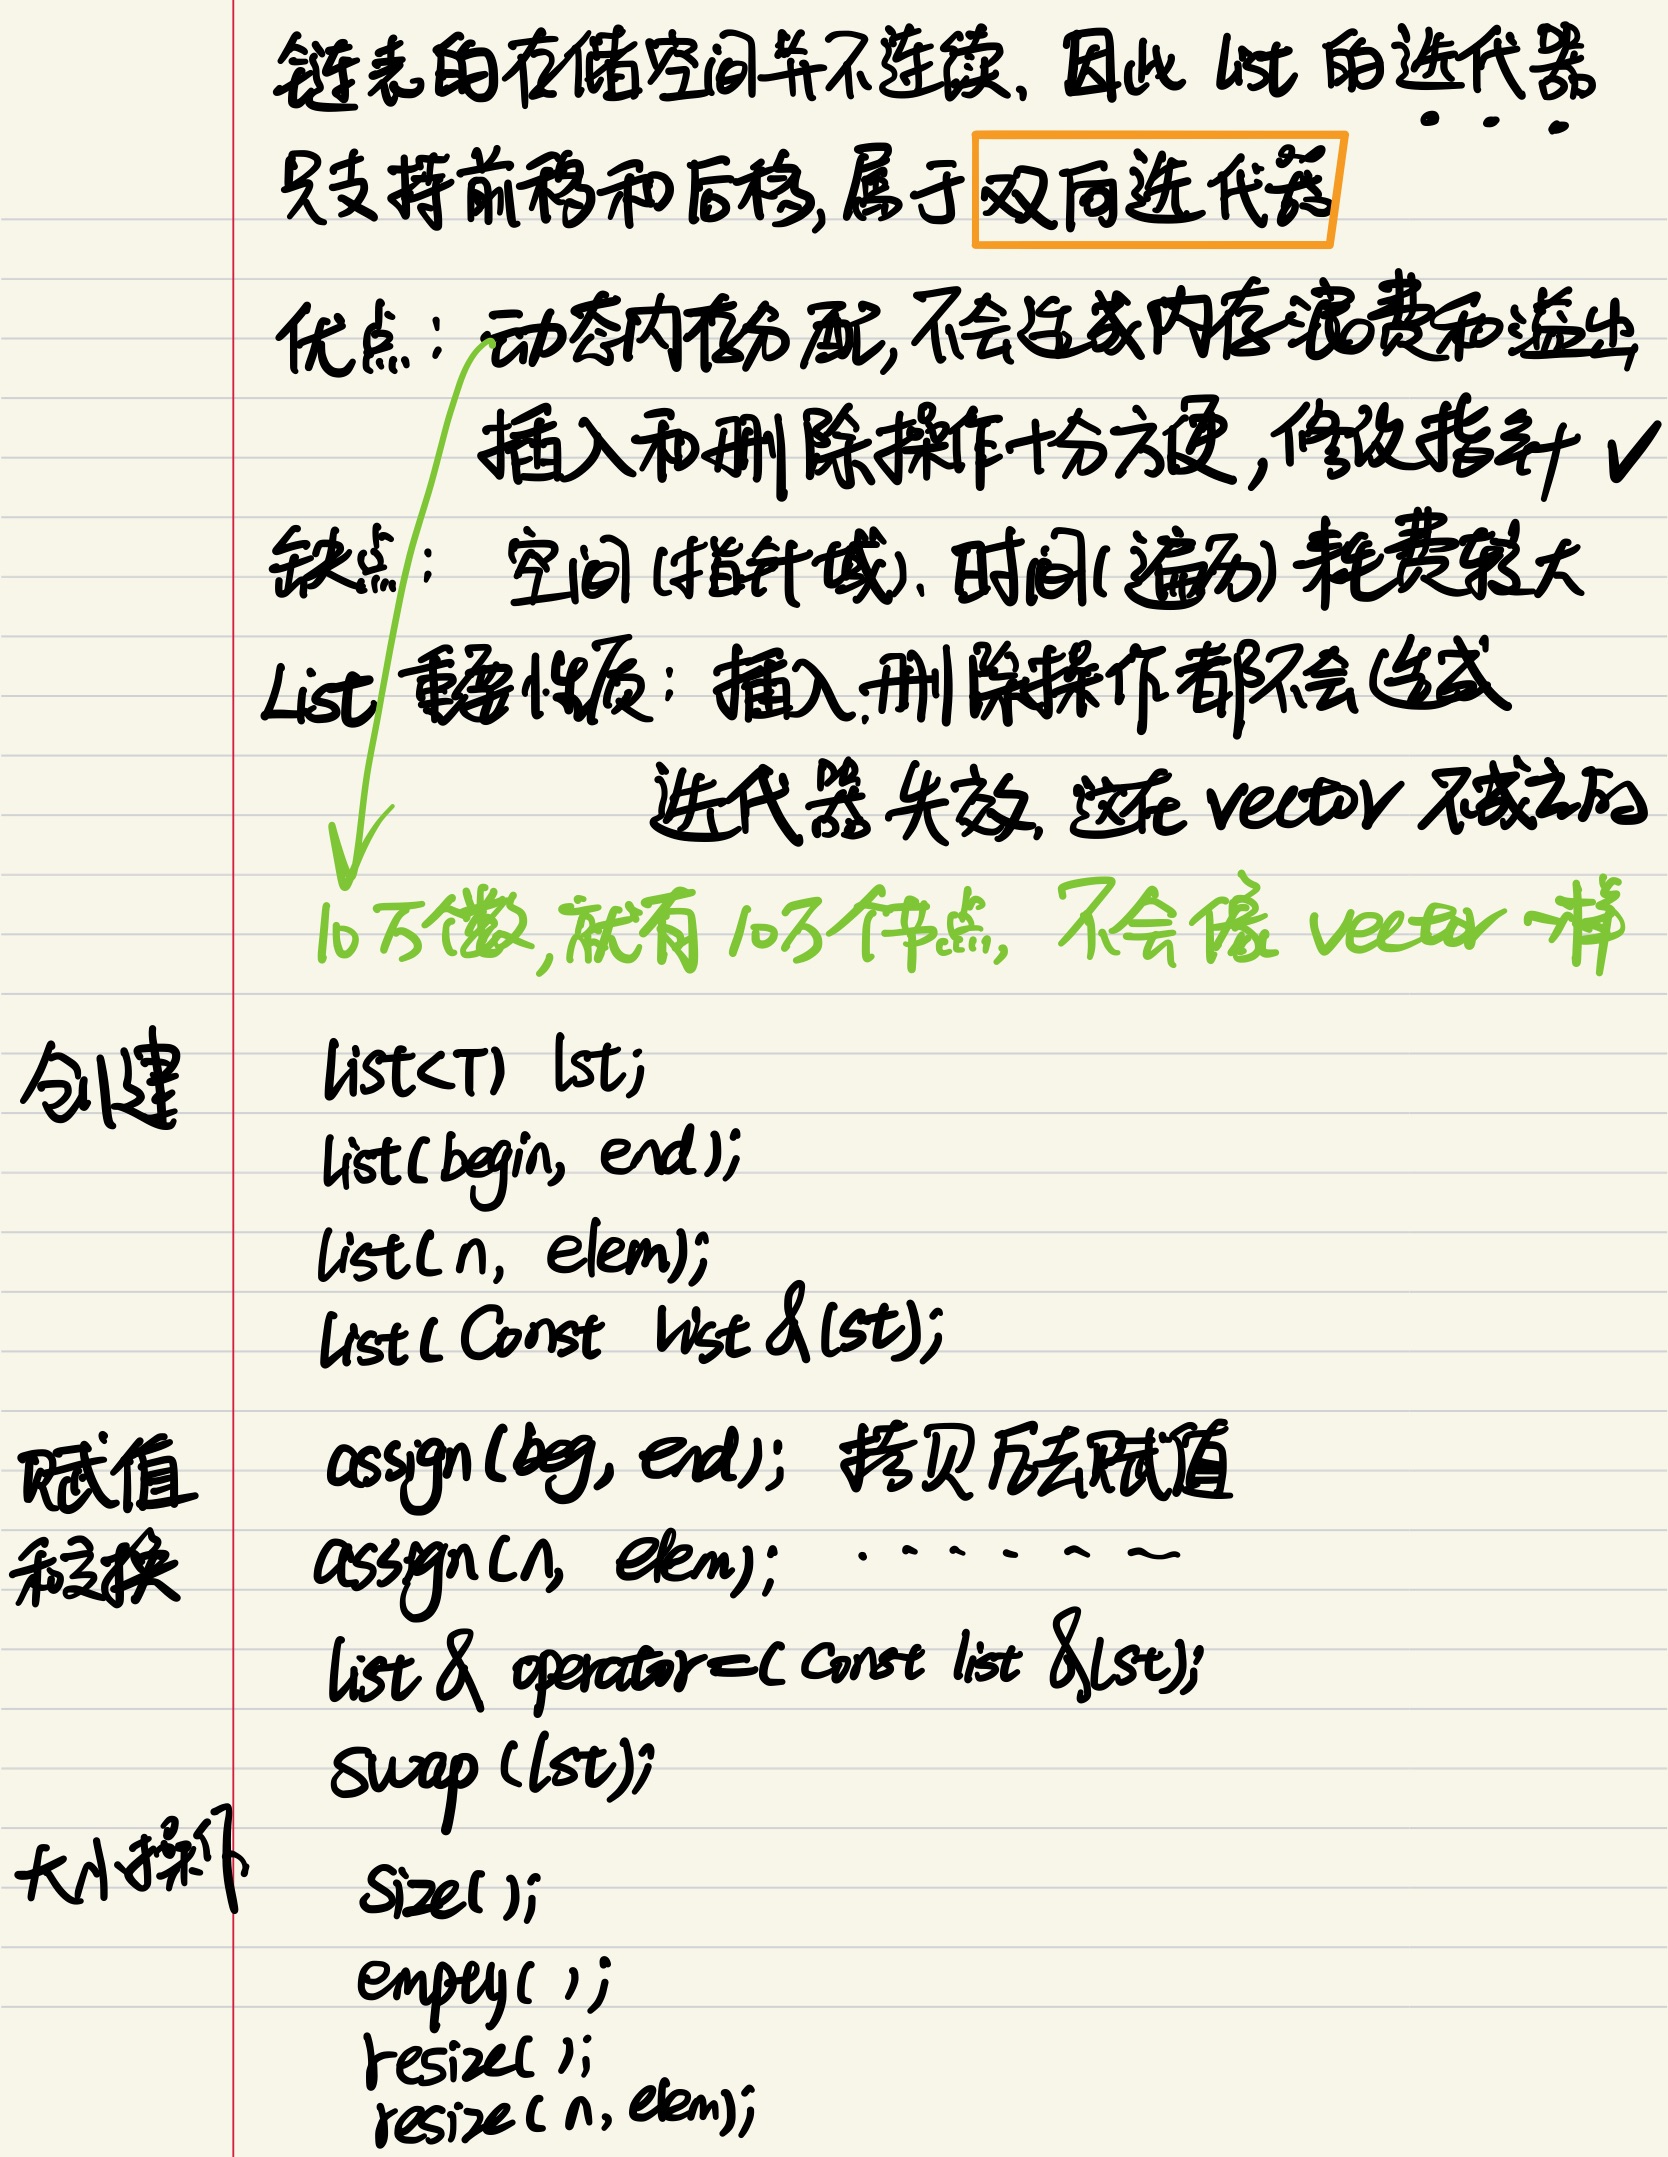 链表的存储空间并不连续、因此 list 的迭代器
只支持前移和后移,属于双向迭代器
优点: 动态内存分配,不会造成内存浪费和溢出
插入和删除操作十分方便,修改指针 ✓
缺点: 空间(指针域)、时间(遍历)耗费较大
List 重要性质: 插入、删除操作都不会造成
迭代器失效、这在 vector 不成立的
10万个数,就有10万个节点, 不会像 vector 一样
创建 list<T) lst;
list(begin, end);
list(n, elem);
list(Const list &lst);
赋值 assign(beg, end); 拷贝后去赋值
和交换 assign(n, elem); · - - - ~ ~
list & operator=(const list &lst);
swap(lst);
大小操作
size();
empty();
resize();
resize(n, elem);